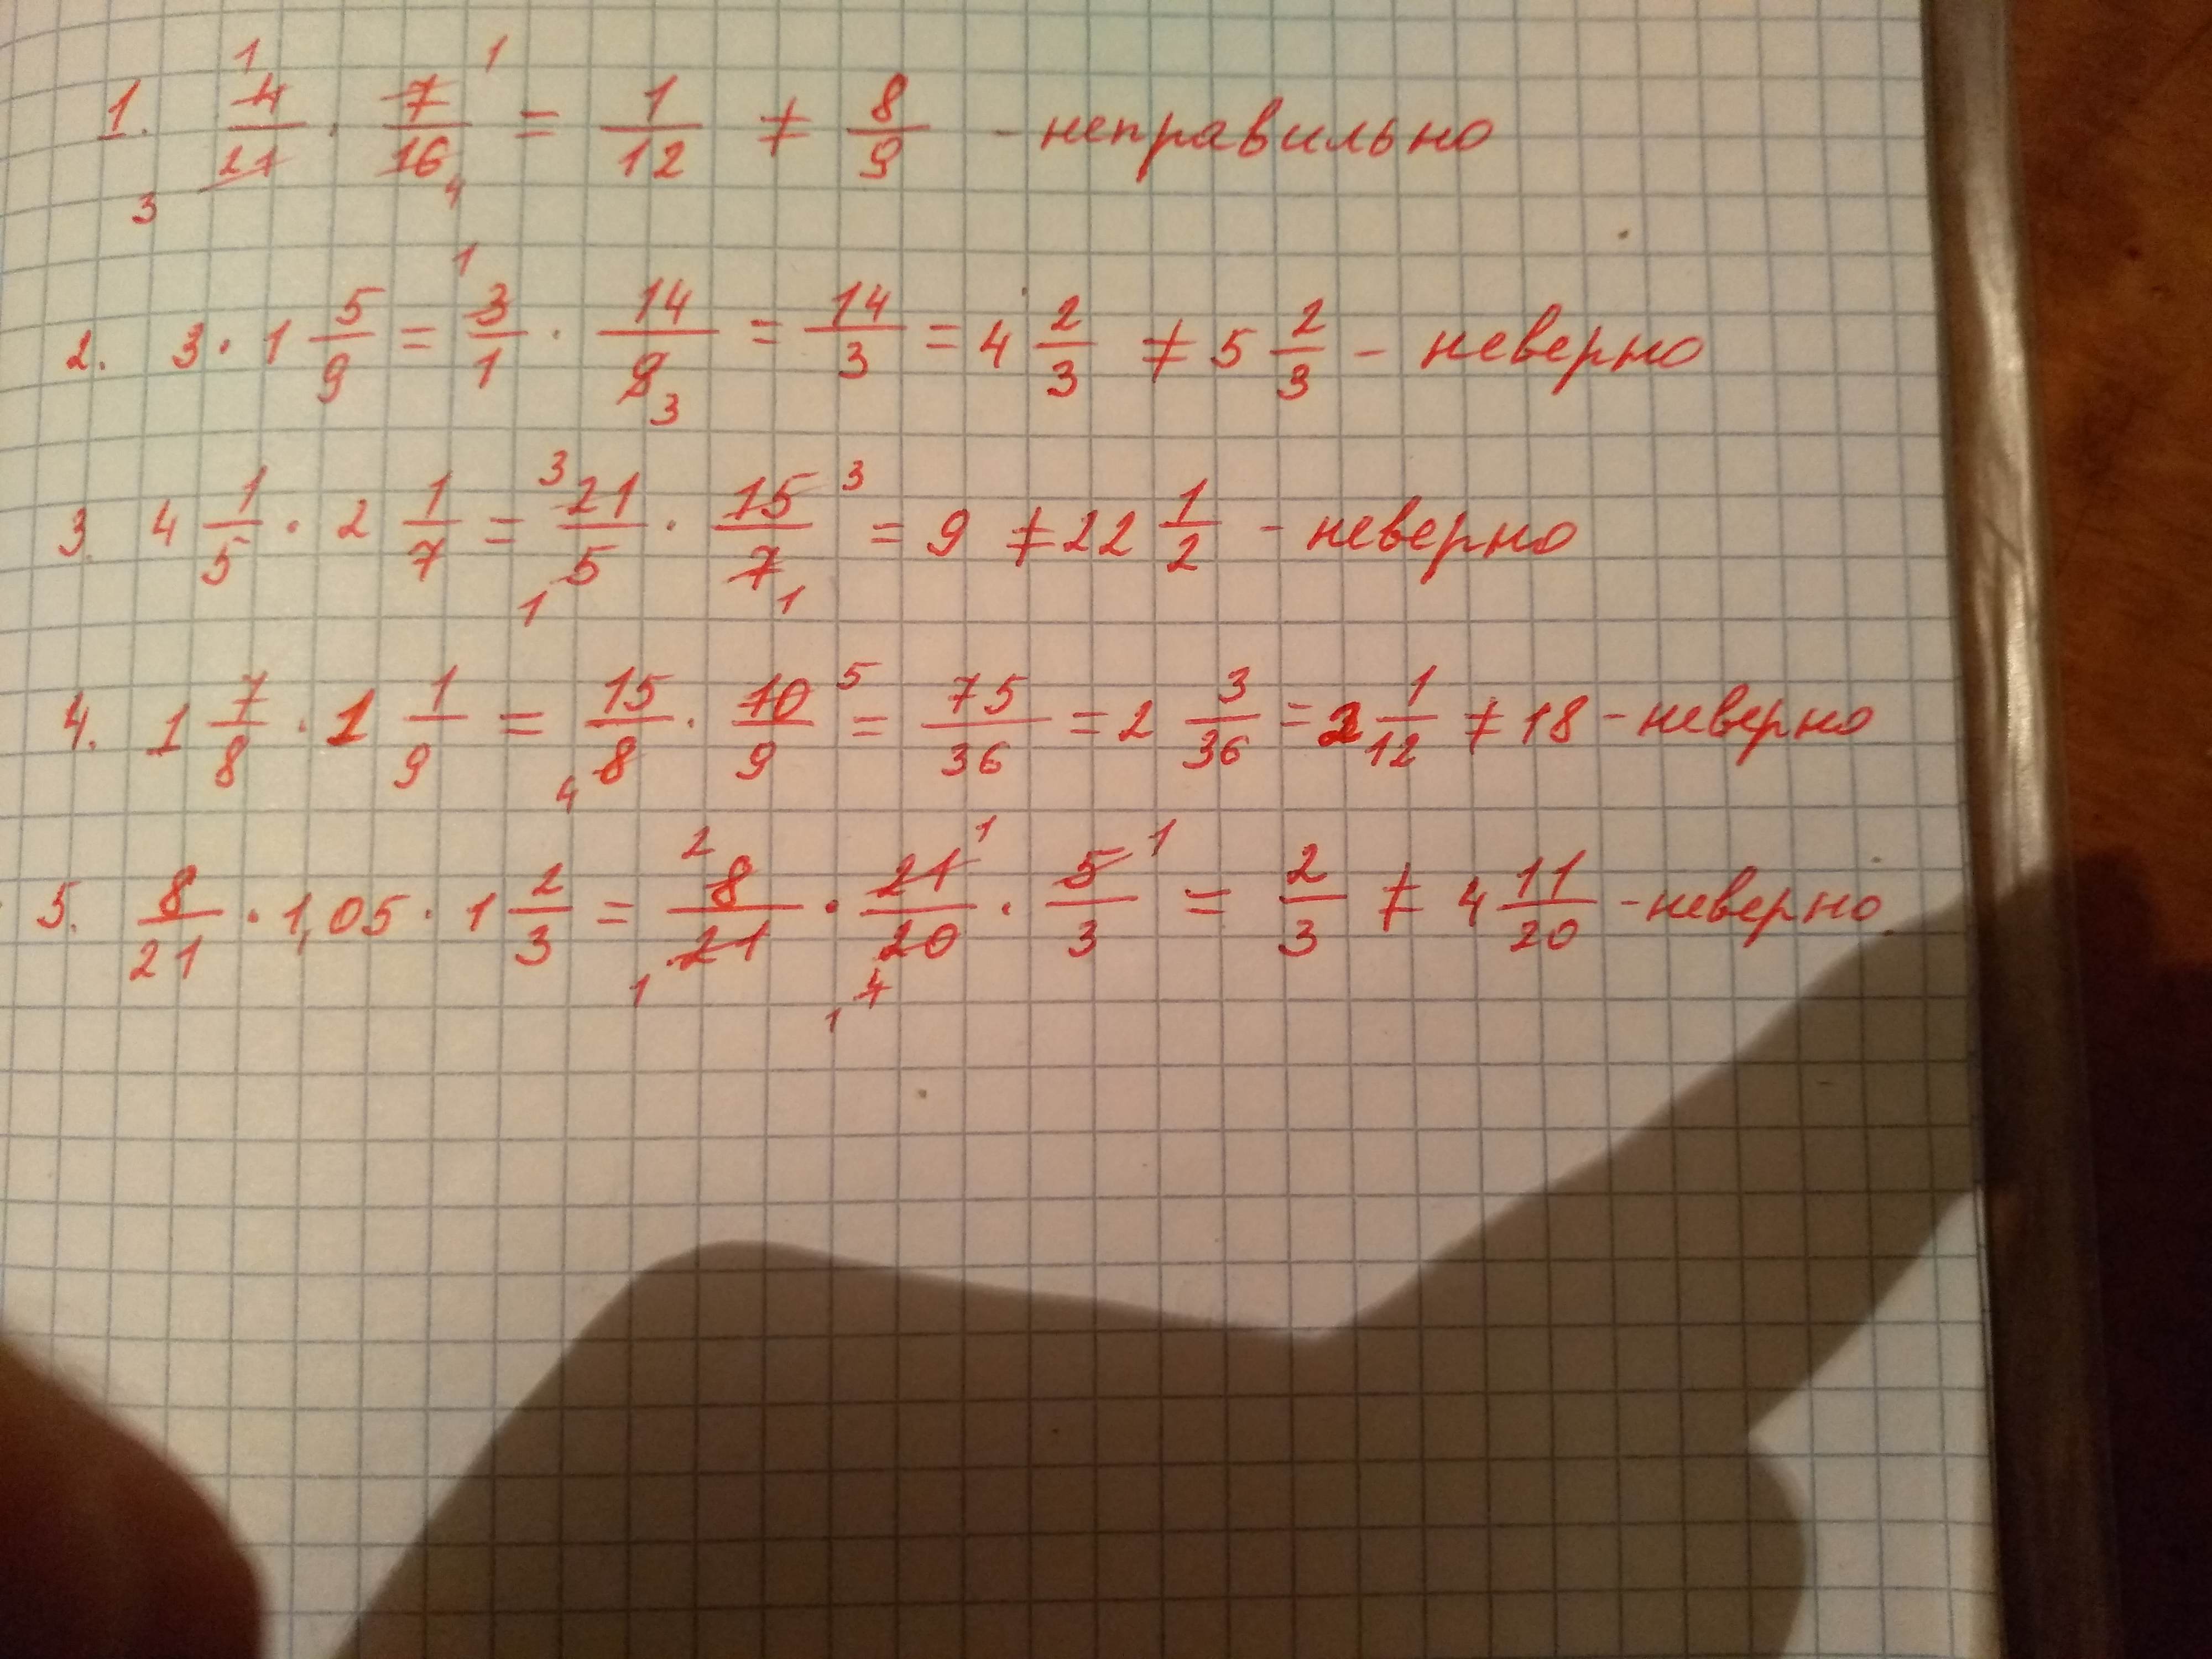 1. 4/21 · 7/16 = 1/12 ≠ 8/9 - неправильно
2. 3 · 1 5/9 = 3/1 · 14/9 = 14/3 = 4 2/3 ≠ 5 2/3 - неверно
3. 4 1/5 · 2 1/7 = 21/5 · 15/7 = 9 ≠ 22 1/2 - неверно
4. 1 7/8 · 1 1/9 = 15/8 · 10/9 = 75/36 = 2 3/36 = 2 1/12 ≠ 18 - неверно
5. 8/21 · 1,05 · 1 2/3 = 8/21 · 21/20 · 5/3 = 2/3 ≠ 4 11/20 - неверно